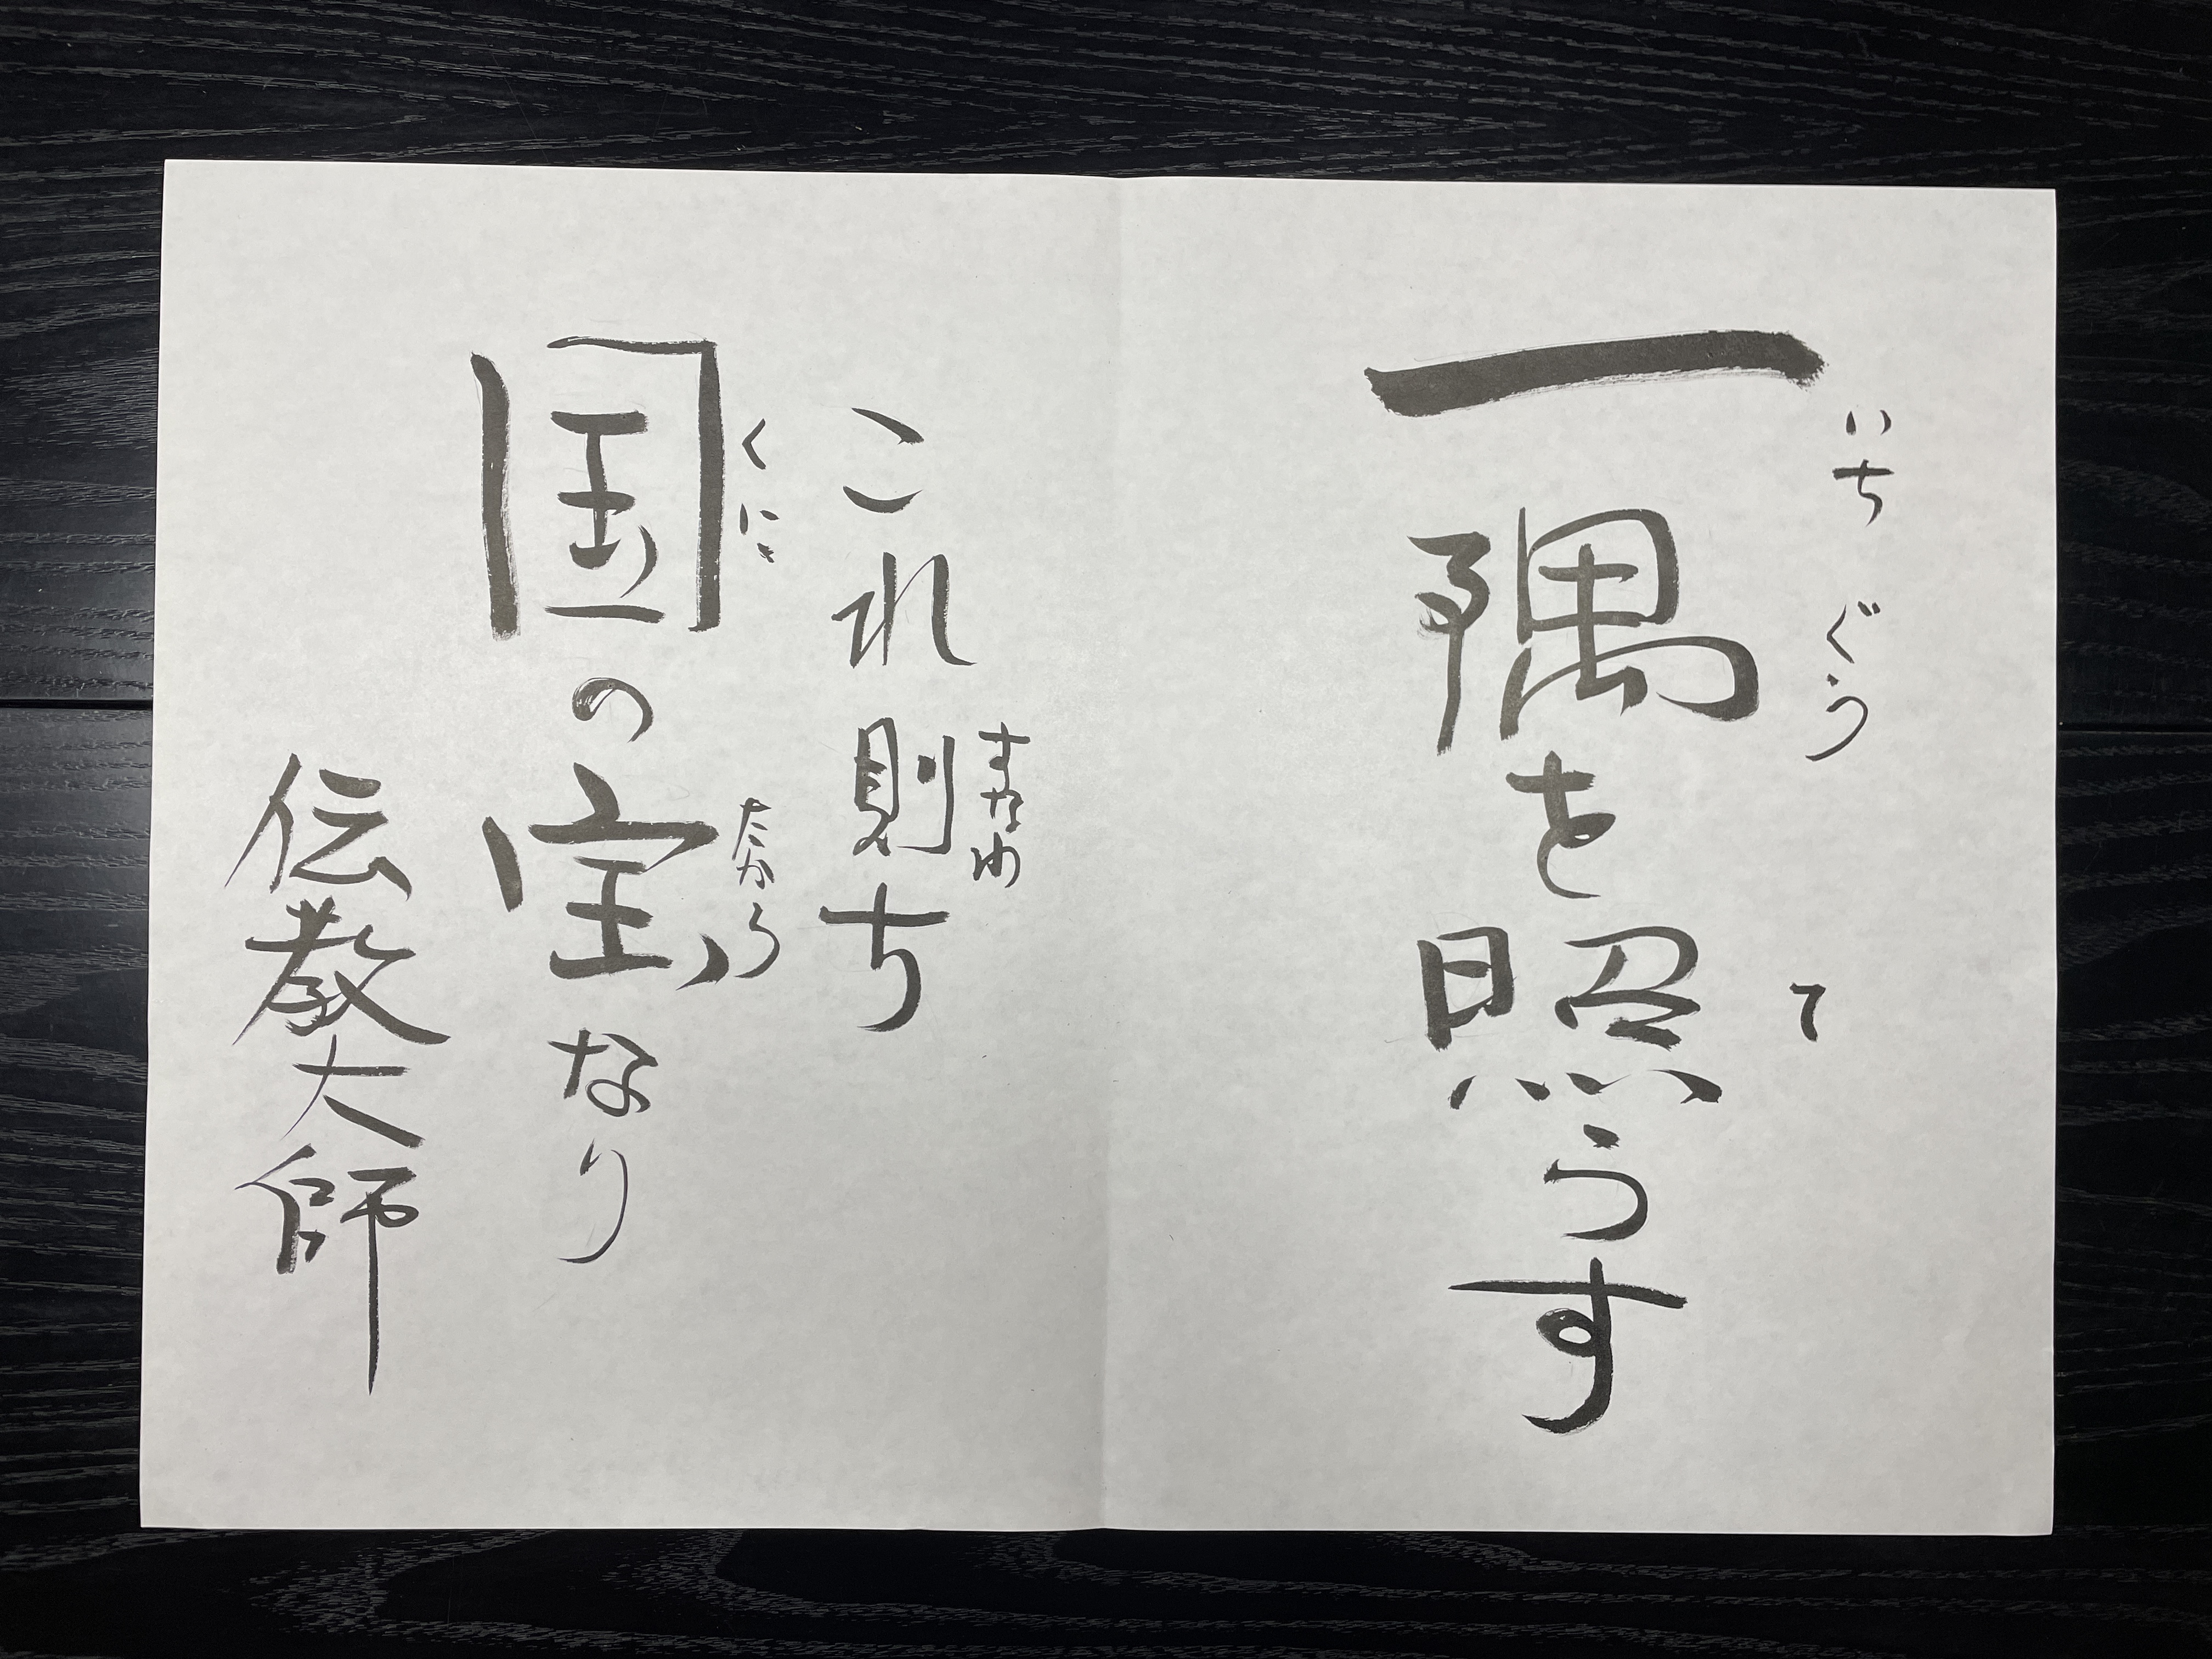 一隅を照らす
いちぐう
て
これ則ち
すなわ
国の宝なり
くに
たから
伝教大師